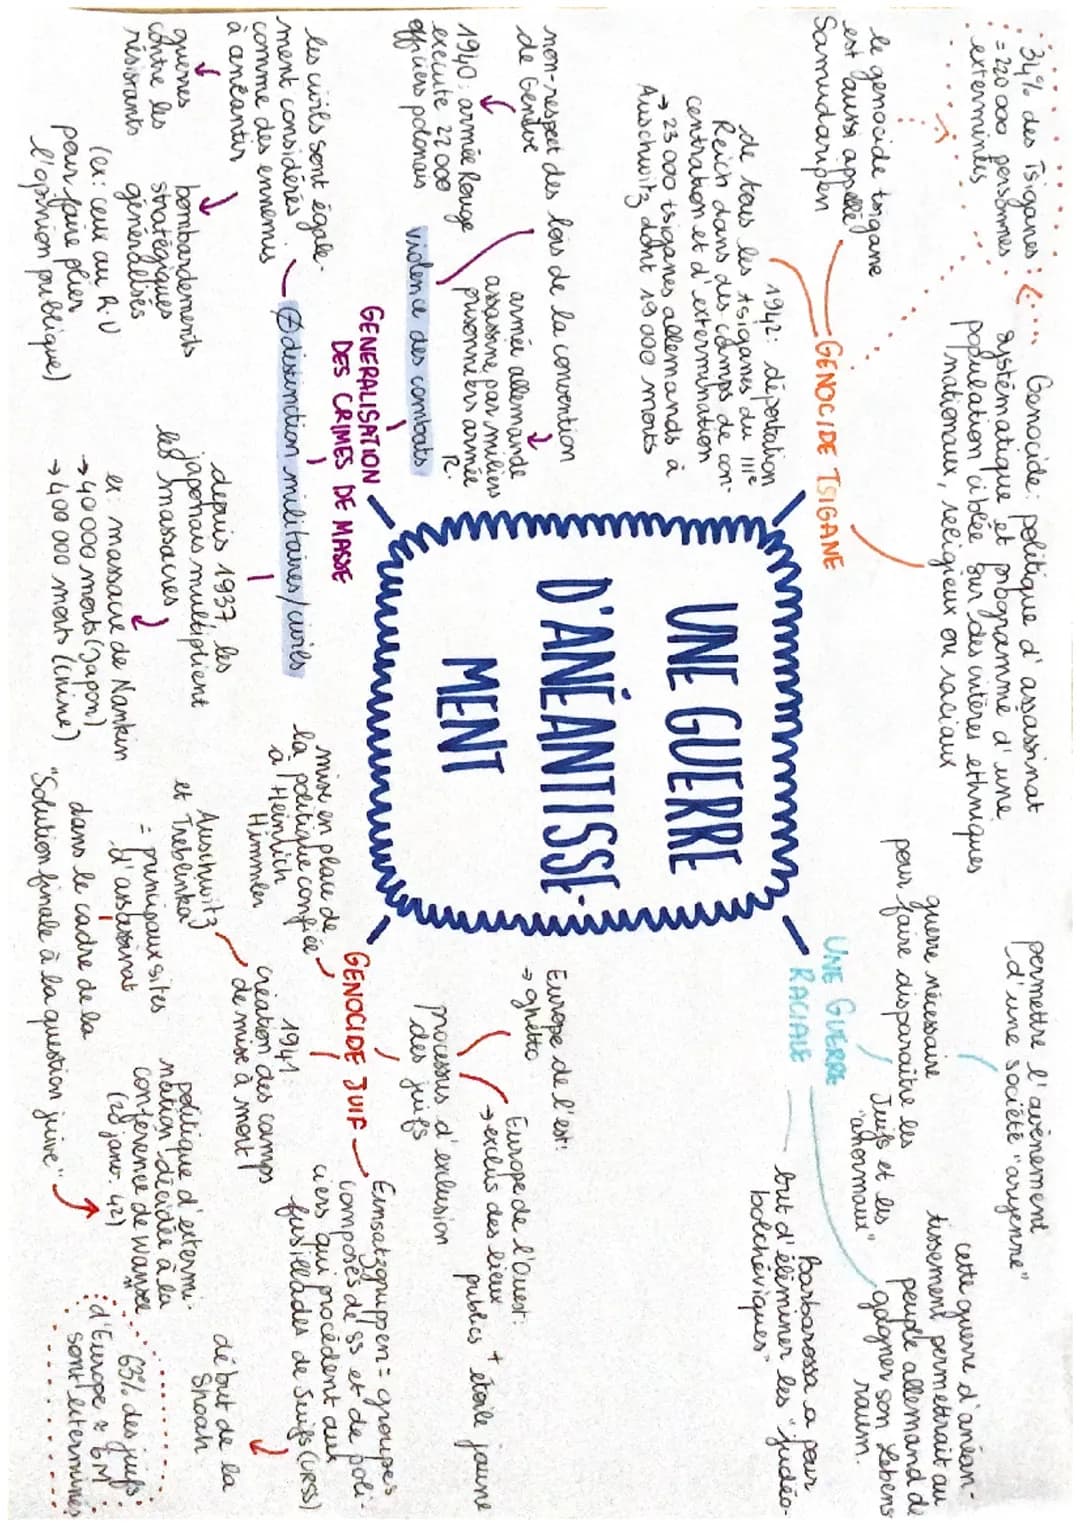 UNE GUERRE
D'ANÉANTISSE-
MENT
GENOCIDE TSIGANE
Genocide: politique d'assassinat
systématique et programmé d'une
population ciblée sur des critères ethniques
nationaux, religieux ou raciaux
34% des Tsiganes :
= 220 000 personnes
exterminées
le génocide tsigane
est aussi appelé
Samudaripen
1942: déportation
de tous les tsiganes du IIIe
Reich dans des camps de con-
centration et d'extermination
→ 23 000 tsiganes allemands à
Auschwitz dont 19 000 morts
UNE GUERRE
RACIALE
permettre l'avènement
d'une société "aryenne"
guerre nécessaire
pour faire disparaître les
Juifs et les
"anormaux"
cette guerre d'anéan-
tissement permettrait au
peuple allemand de
gagner son Lebens
raum.
Barbarossa a pour
but d'éliminer les "judéo-
bolchéviques"
GENERALISATION
DES CRIMES DE MASSE
violence des combats
non-respect des lois de la convention
de Genève
1940: armée Rouge
exécute 22 000
officiers polonais
armée allemande
assassine par milliers
prisonniers armée
R.
⊘ distinction militaires/civils
les civils sont égale-
ment considérés
comme des ennemis
à anéantir
guerres
contre les
résistants
bombardements
stratégiques
généralisés
(ex: ceux au R.U
pour faire plier
l'opinion publique)
depuis 1937, les
japonais multiplient
les massacres
ex: massacre de Nankin
→ 40 000 morts (Japon)
→ 400 000 morts (Chine)
GENOCIDE JUIF
processus d'exclusion
des juifs
Europe de l'est:
→ ghetto
Europe de l'Ouest:
→ exclus des lieux
publics + étoile jaune
Einsatzgruppen = groupes
composés de SS et de poli-
ciers qui procèdent aux
fusillades de Juifs (URSS)
début de la
Shoah
1941:
création des camps
de mise à mort
Auschwitz
et Treblinka
= principaux sites
d'assassinat
mise en place de
la politique confiée
à Heinrich
Himmler
politique d'extermi-
nation décidée à la
conférence de Wansee
(20 janv. 42)
dans le cadre de la
"Solution finale à la question juive"
63% des juifs
d'Europe ≈ 6M
sont exterminés